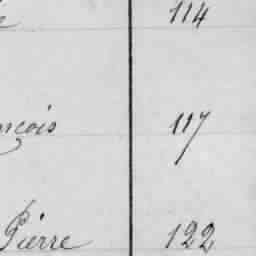 114
nçois 117
Pierre 122